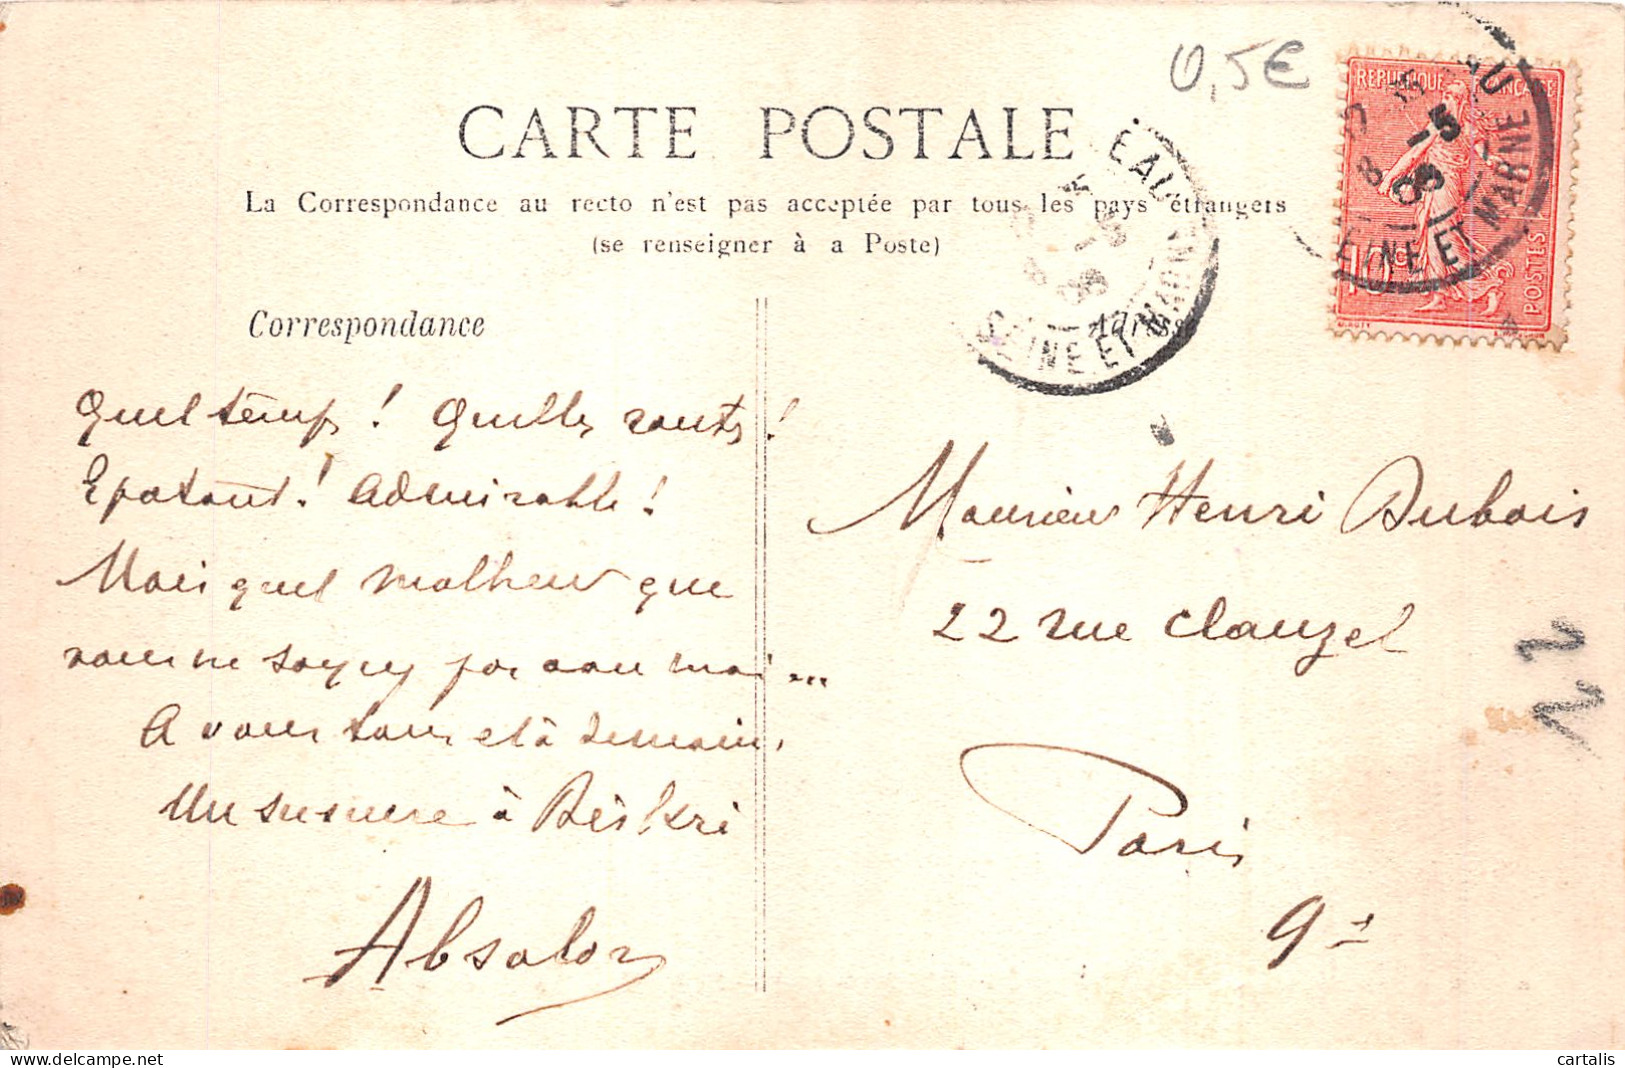 0,5€
CARTE POSTALE
La Correspondance au recto n'est pas acceptée par tous les pays étrangers
(se renseigner à a Poste)
REPUBLIQUE FRANÇAISE
10c
POSTES
SEINE ET MARNE
EAU
SEINE ET MARNE
Correspondance
Adresse
Quel temps! Quelles routes!
Epatant! Admirable!
Mais quel malheur que
vous ne soyez pas avec moi...
A vous tous et à demain.
Un à
Absalon
Monsieur Henri Dubois
22 rue Clauzel
Paris
9e
22
cartalis
delcampe.net